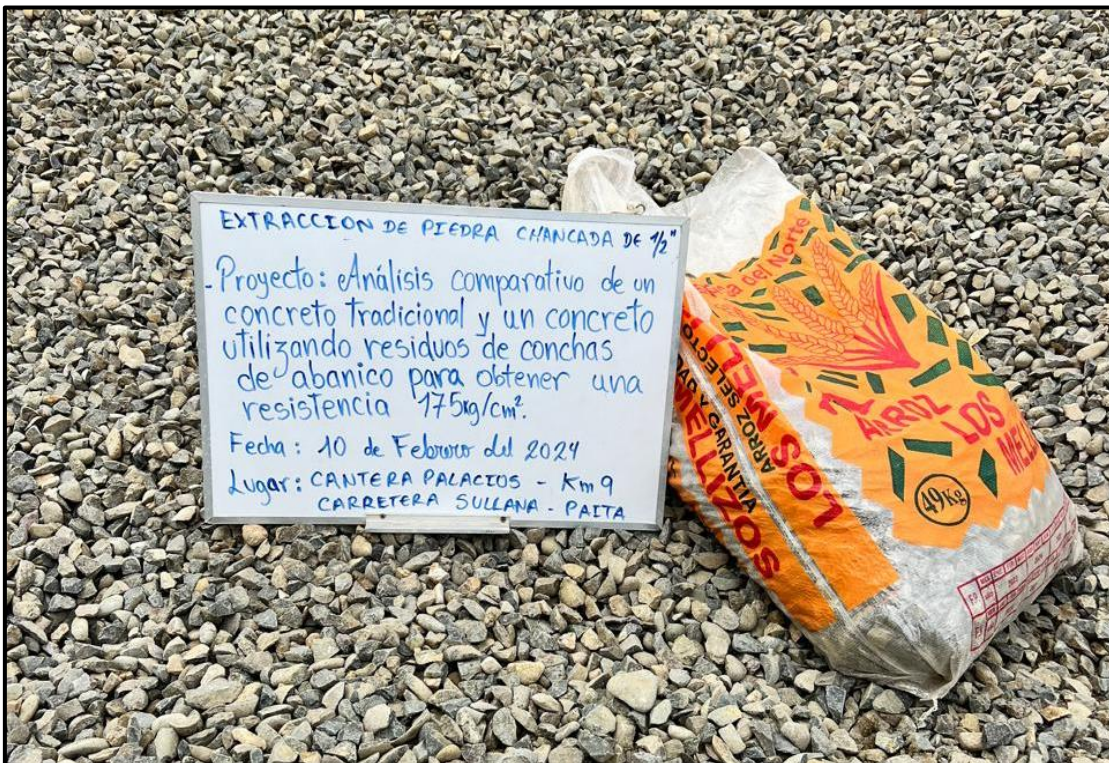 EXTRACCION DE PIEDRA CHANCADA DE 1/2"
- Proyecto: Análisis comparativo de un
concreto tradicional y un concreto
utilizando residuos de conchas
de abanico para obtener una
resistencia 175kg/cm².
Fecha: 10 de Febrero del 2024
Lugar: CANTERA PALACIOS - Km 9
CARRETERA SULLANA - PAITA
del Norte
ARROZ
LOS
MELLI
49Kg
LOS MELLI
ARROZ SELECTO
GARANTIA
MELLIZOS